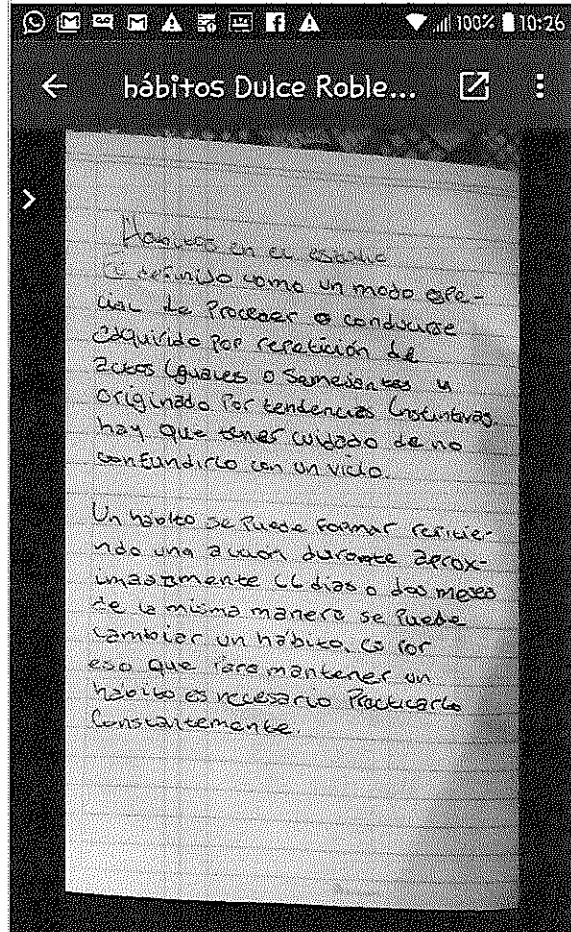 100% 10:26
hábitos Dulce Roble...
Hábitos en el estudio
Es definido como un modo espe-
cial de Proceder o conducirse
adquirido por repetición de
actos iguales o semejantes y
originado Por tendencias instintivas.
hay que tener cuidado de no
confundirlo con un vicio.
Un hábito se Puede formar repitie-
ndo una acción durante aprox-
imadamente 66 días o dos meses
de la misma manera se Puede
cambiar un hábito, es por
eso que para mantener un
hábito es necesario Practicarlo
Constantemente.